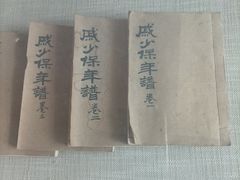 戚少保年譜
卷一
戚少保年譜
卷二
戚少保年譜
卷三